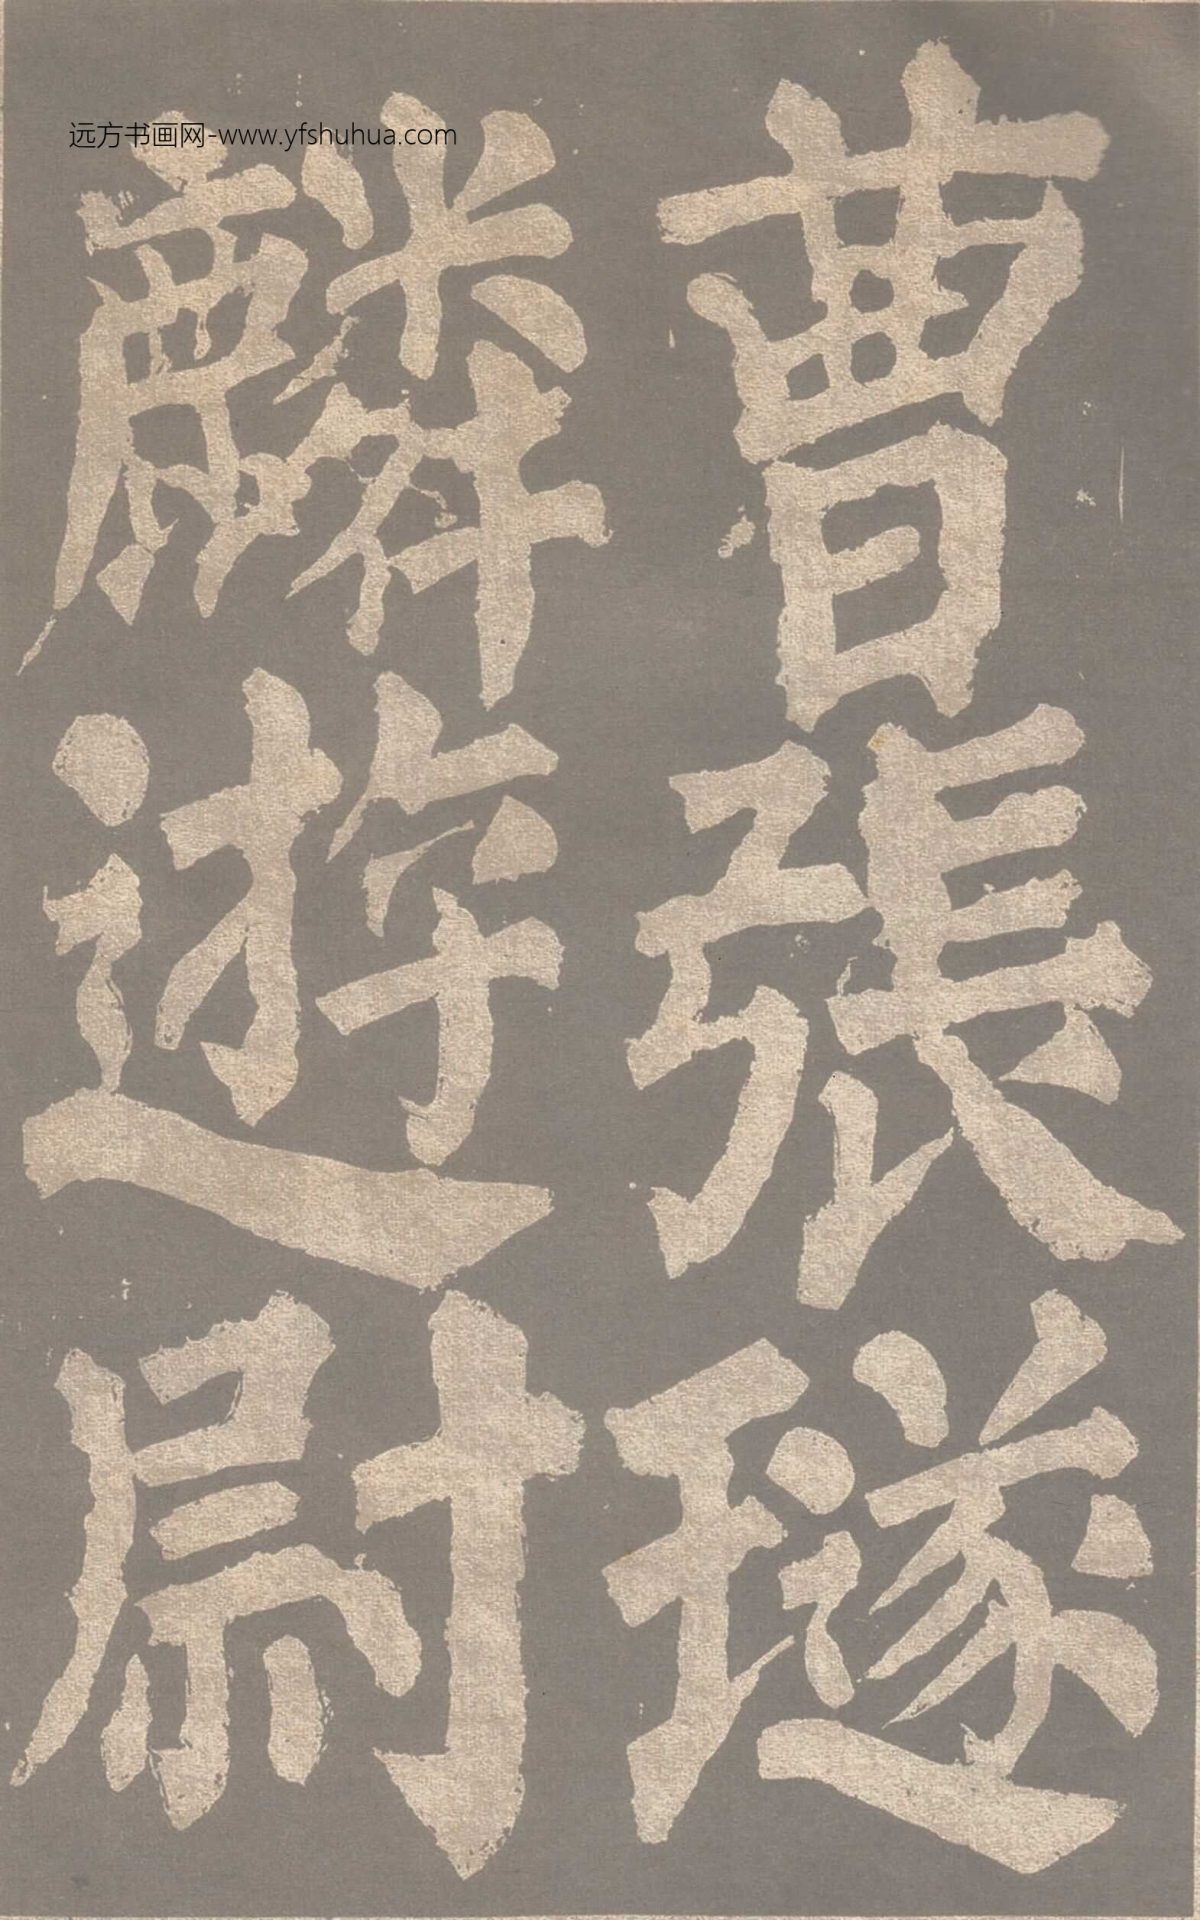 曹張璲
麟遊尉
远方书画网-www.yfshuhua.com